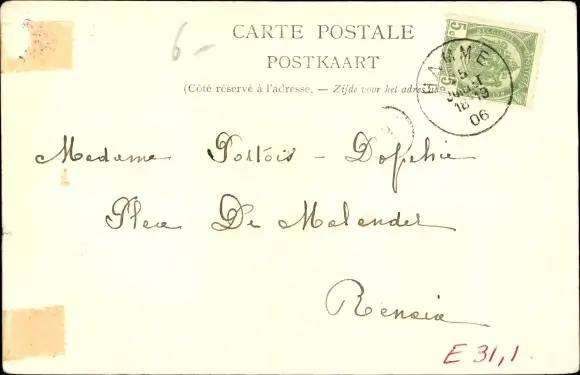 6-
CARTE POSTALE
POSTKAART
(Côté réservé à l'adresse. — Zijde voor het adres
5c
HAMME
5
18-19
06
Madame Portois - Dopchie
Place De Malander
Renaix
E 31,1